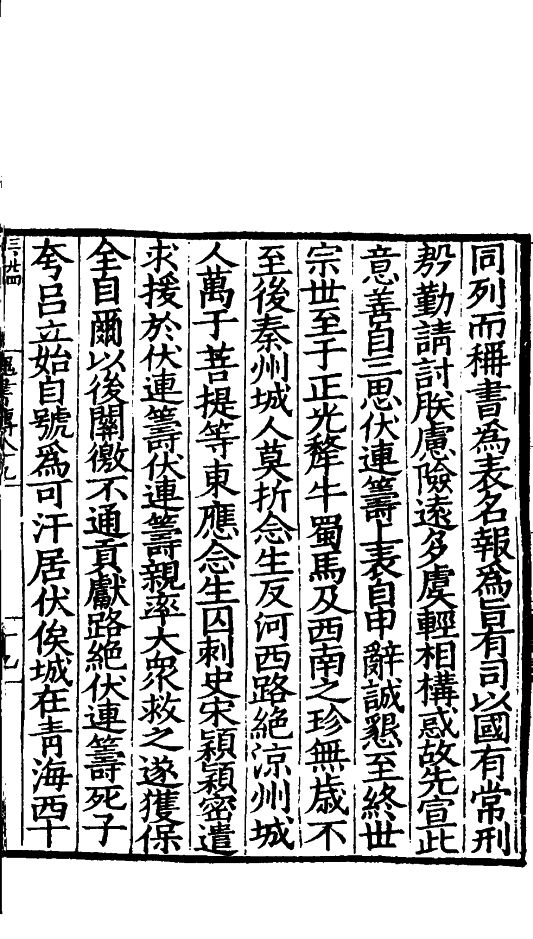 同列而稱書為表名報為旨有司以國有常刑
懃勤請討朕慮險遠多虞輕相構惑故先宣此
意善自三思伏連籌上表自申辭誠懇至終世
宗世至于正光犛牛蜀馬及西南之珍無歲不
至後秦州城人莫折念生反河西路絶涼州城
人萬于菩提等東應念生囚刺史宋穎穎密遣
求援於伏連籌伏連籌親率大衆救之遂獲保
全自爾以後關徼不通貢獻路絶伏連籌死子
夸吕立始自號為可汗居伏俟城在青海西十
三廿四
魏書傳八九
十九